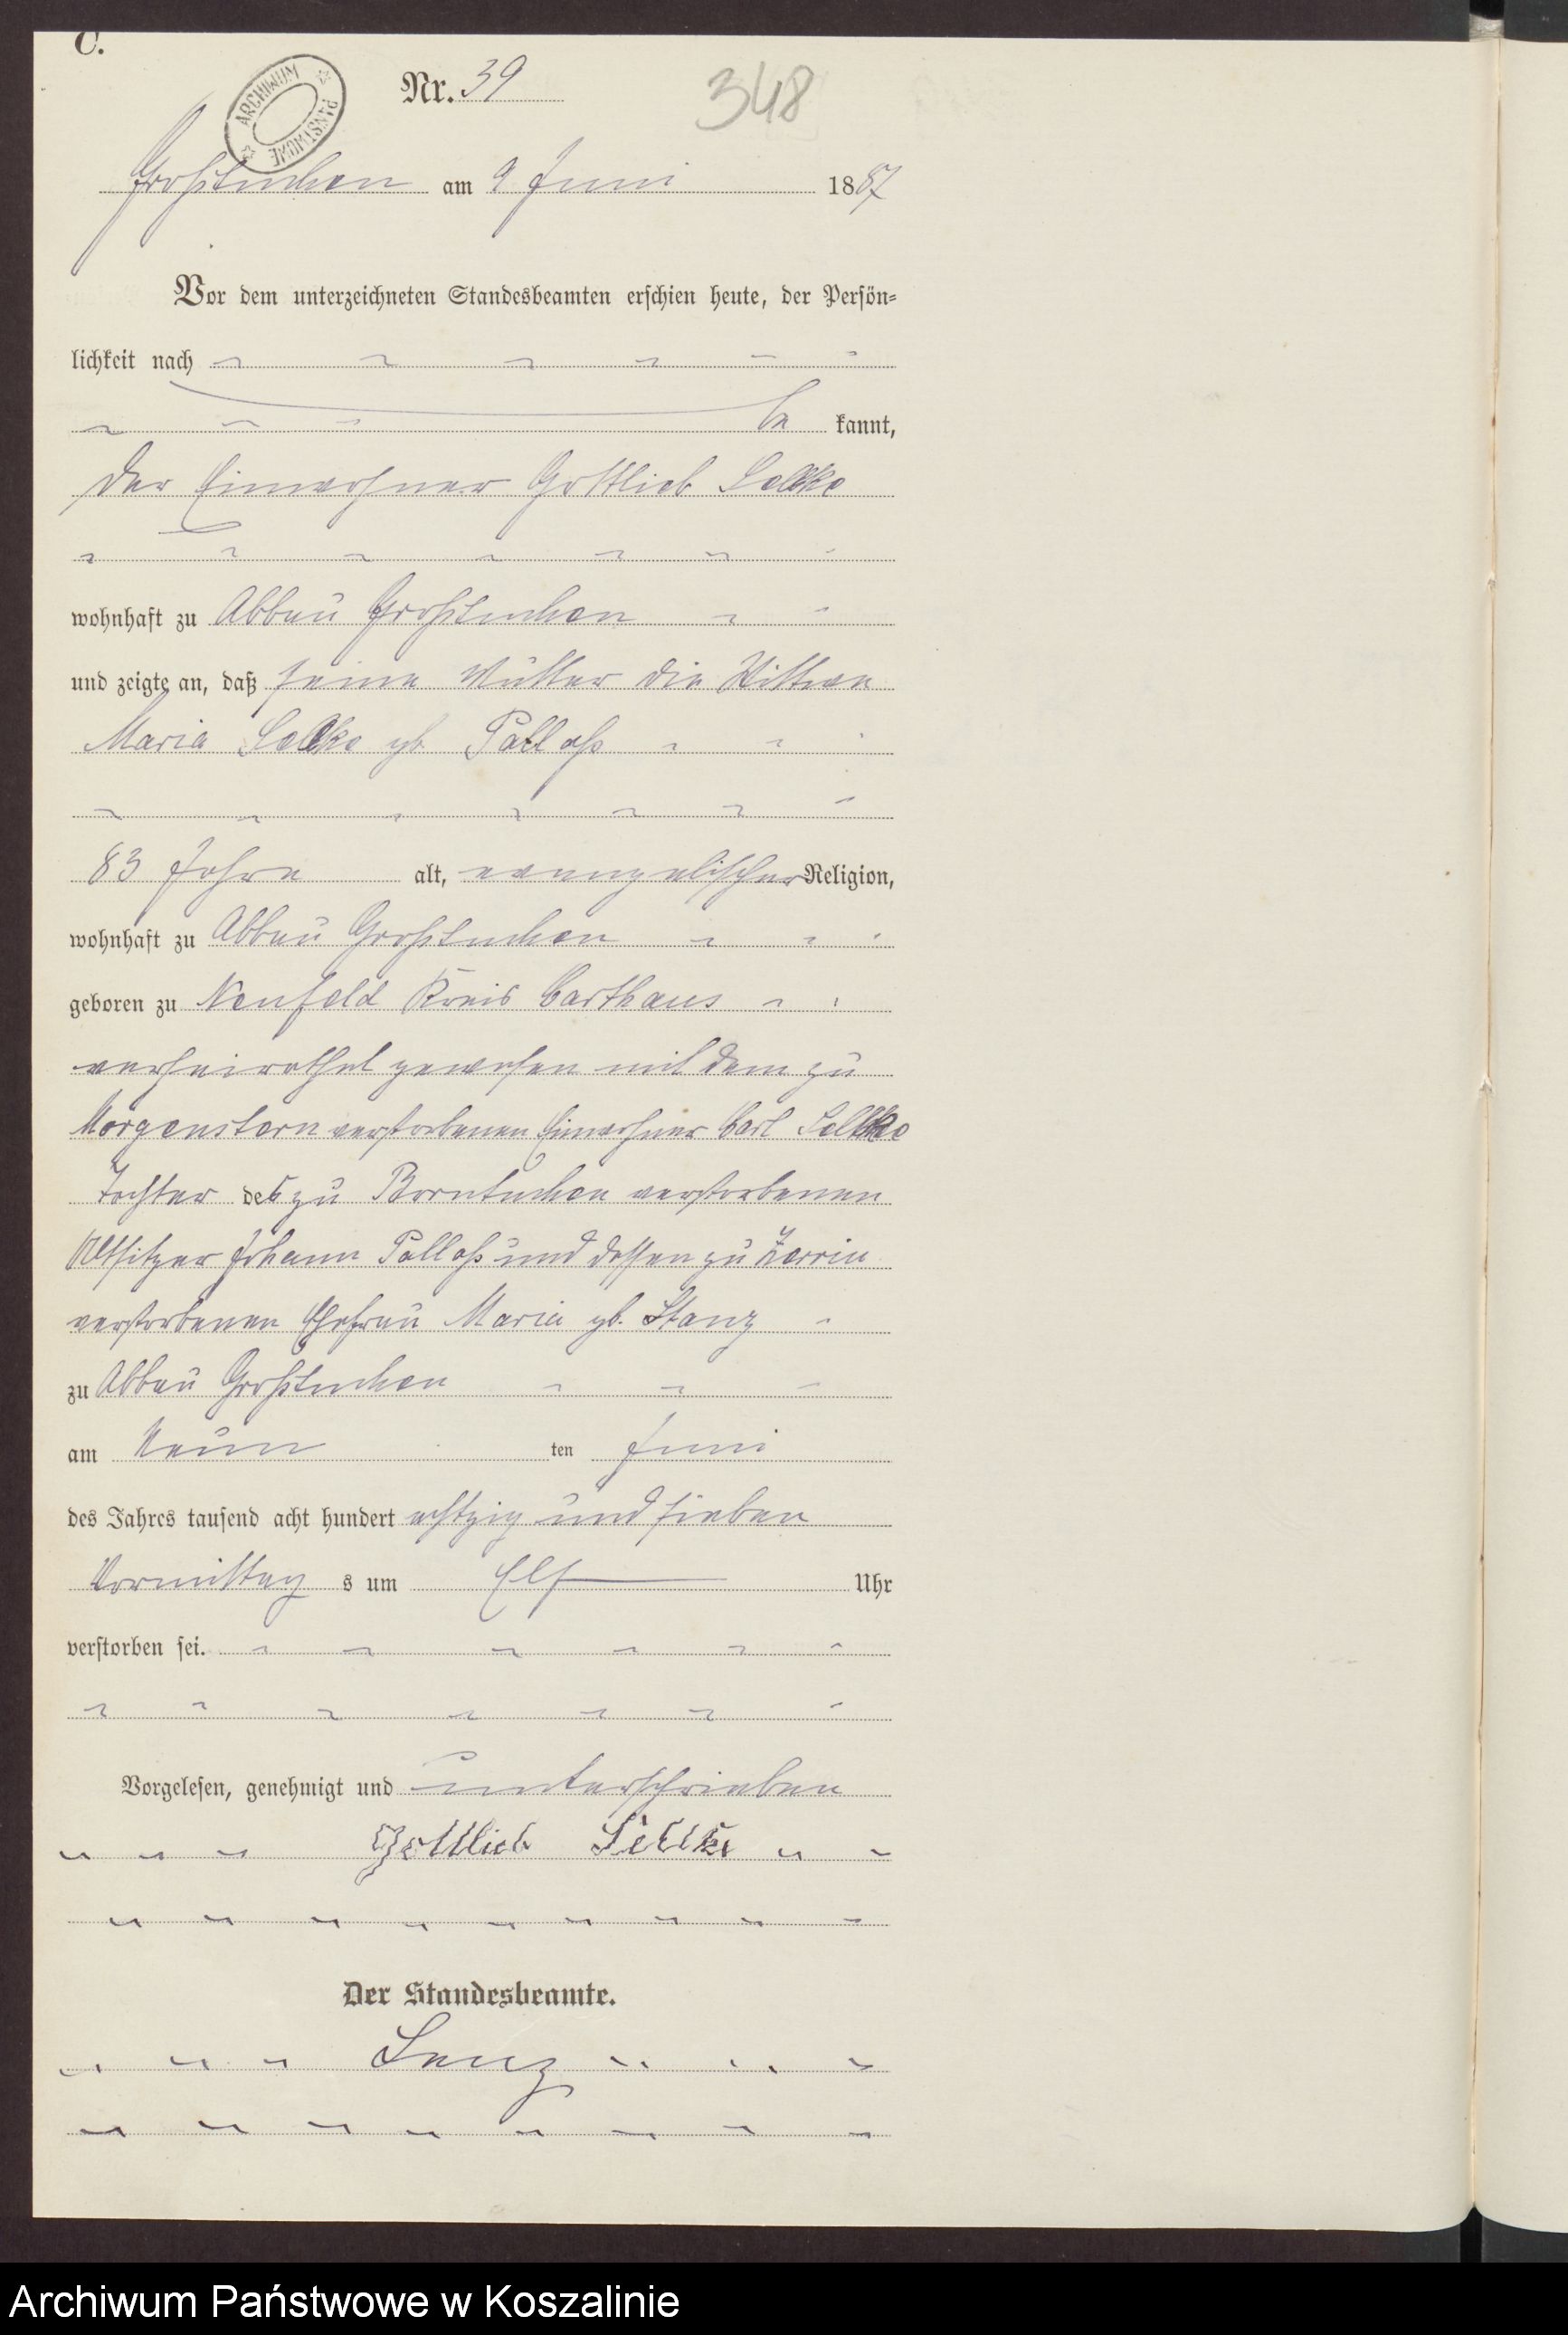 C.
ARCHIWUM PAŃSTWOWE
Nr. 39
348
Großtuchen am 9 Juni 1887
Vor dem unterzeichneten Standesbeamten erschien heute, der Persön=
lichkeit nach
be kannt,
der Einwohner Gottlieb Sellke
wohnhaft zu Abbau Großtuchen
und zeigte an, daß seine Mutter die Wittwe
Maria Sellke gb. Pallaß
83 Jahre alt, evangelischer Religion,
wohnhaft zu Abbau Großtuchen
geboren zu Neufeld Kreis Carthaus
verheirathet gewesen mit dem zu
Morgenstern verstorbenen Einwohner Carl Sellke
Tochter des zu Borntuchen verstorbenen
Altsitzer Johann Pallaß und dessen zu Zerrin
verstorbenen Ehefrau Maria gb. Stanz
zu Abbau Großtuchen
am Neun ten Juni
des Jahres tausend acht hundert achtzig und sieben
Vormittag s um Elf Uhr
verstorben sei.
Vorgelesen, genehmigt und unterschrieben
Gottlieb Sellke
Der Standesbeamte.
Lenz
Archiwum Państwowe w Koszalinie